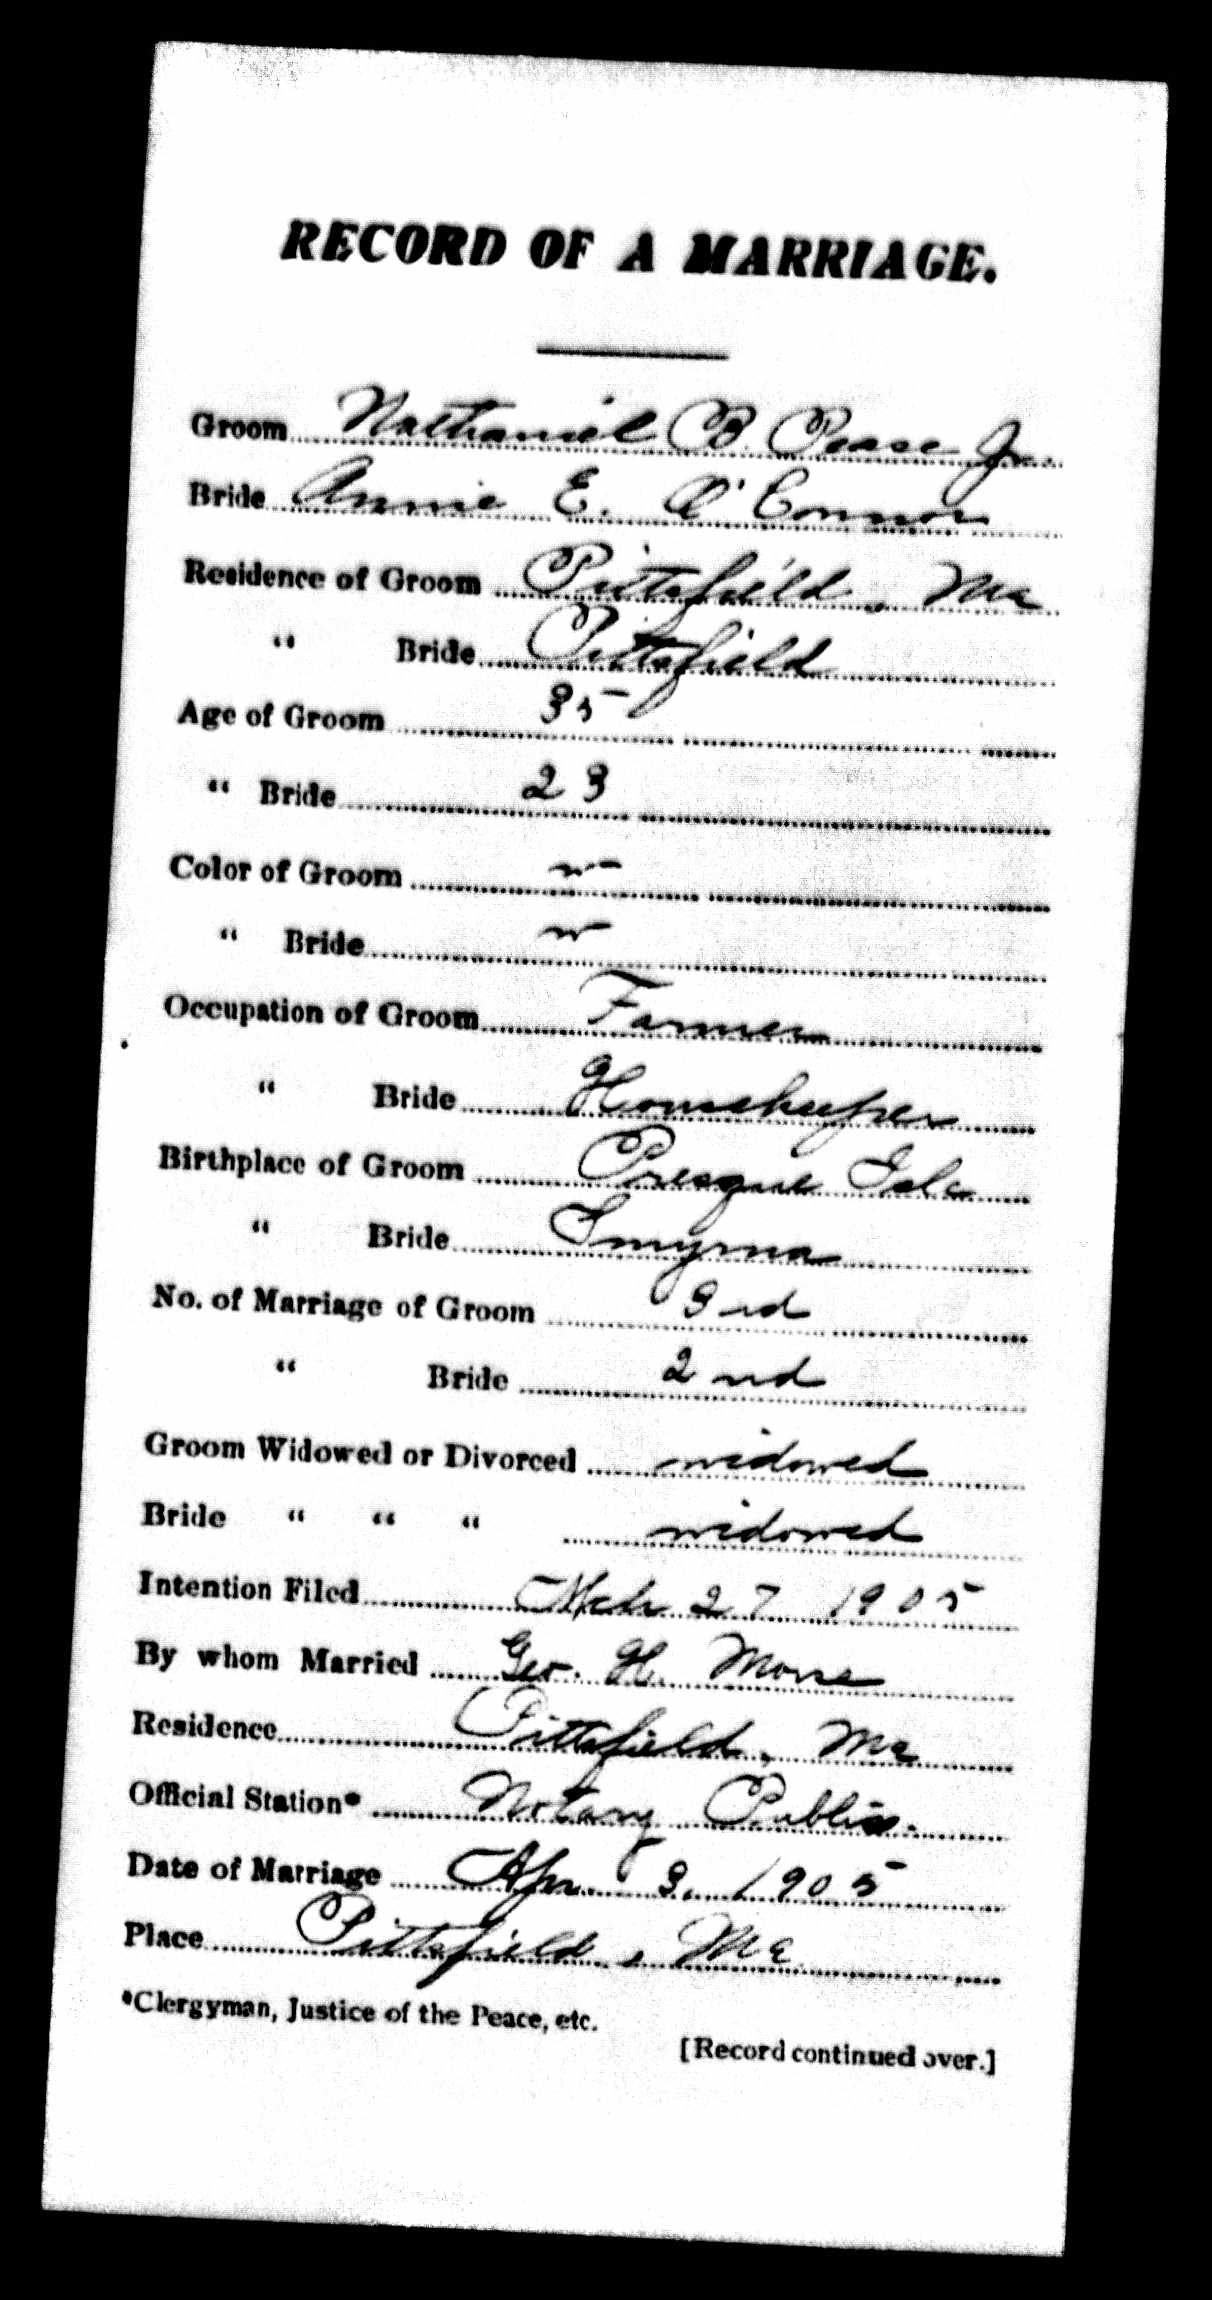 RECORD OF A MARRIAGE.
Groom Nathaniel B. Pease Jr.
Bride Annie E. O'Connor
Residence of Groom Pittsfield, Me
" Bride Pittsfield
Age of Groom 35
" Bride 23
Color of Groom w
" Bride w
Occupation of Groom Farmer
" Bride Housekeeper
Birthplace of Groom Presque Isle
" Bride Smyrna
No. of Marriage of Groom 3rd
" Bride 2nd
Groom Widowed or Divorced widowed
Bride " " " widowed
Intention Filed Mch 27 1905
By whom Married Geo. H. Morse
Residence Pittsfield, Me
Official Station* Notary Public.
Date of Marriage Apr. 3, 1905
Place Pittsfield, Me
*Clergyman, Justice of the Peace, etc.
[Record continued over.]